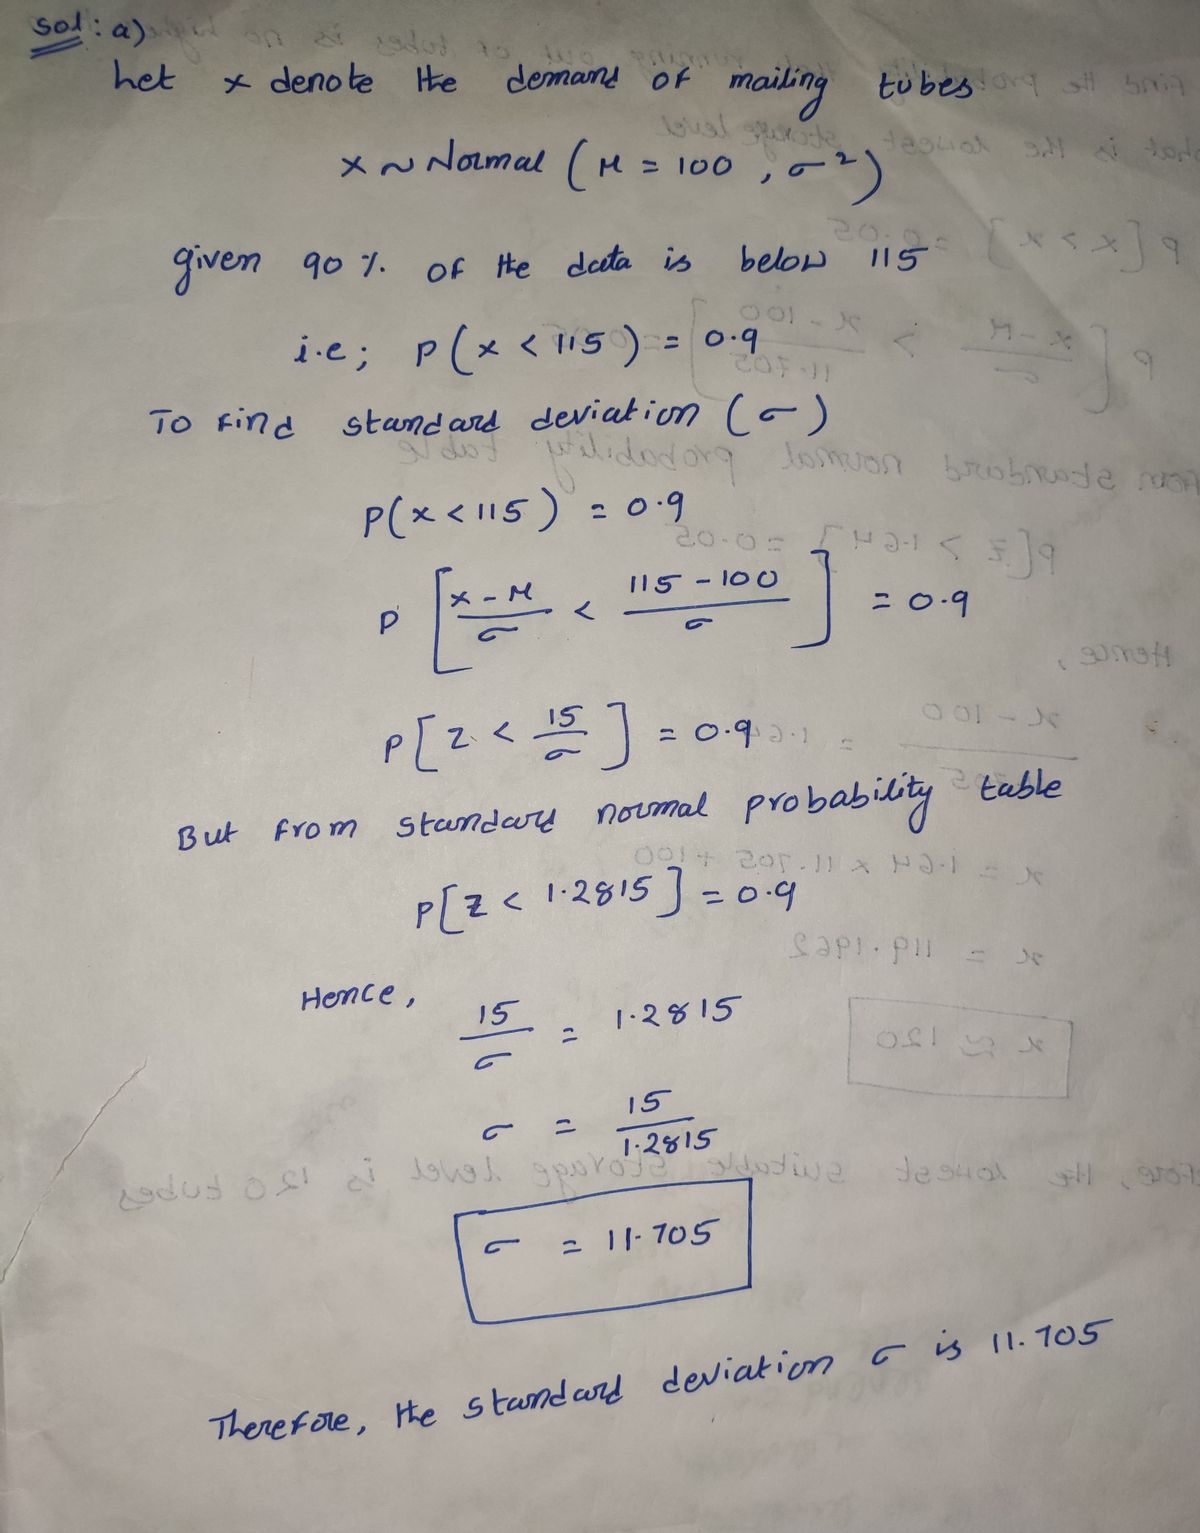 Sol: a)
Let x denote the demand of mailing tubes
x ~ Normal (μ = 100, σ²)
given 90 %. of the data is below 115
i.e; P(x < 115) = 0.9
To find standard deviation (σ)
P(x < 115) = 0.9
P[(x - μ)/σ < (115 - 100)/σ] = 0.9
P[Z < 15/σ] = 0.9
But from standard normal probability table
P[Z < 1.2815] = 0.9
Hence,
15/σ = 1.2815
σ = 15/1.2815
σ = 11.705
Therefore, the standard deviation σ is 11.705